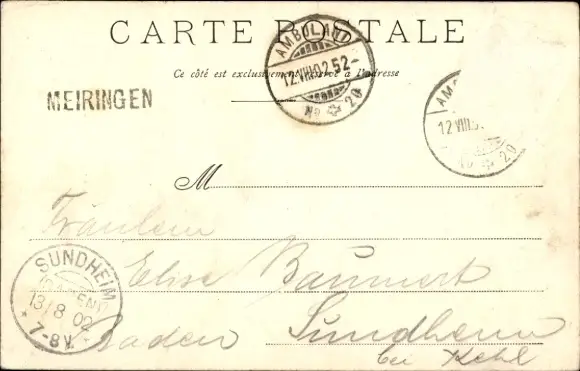 CARTE POSTALE
Ce côté est exclusivement réservé à l'adresse
AMBULANT
12.VIII.02.52-
No 20
MEIRINGEN
AMB
12 VIII.0
No 20
M
Fräulein
Elise Baumert
Sundheim
bei Kehl
Baden
SUNDHEIM
13/8 02
* 7-8V. *